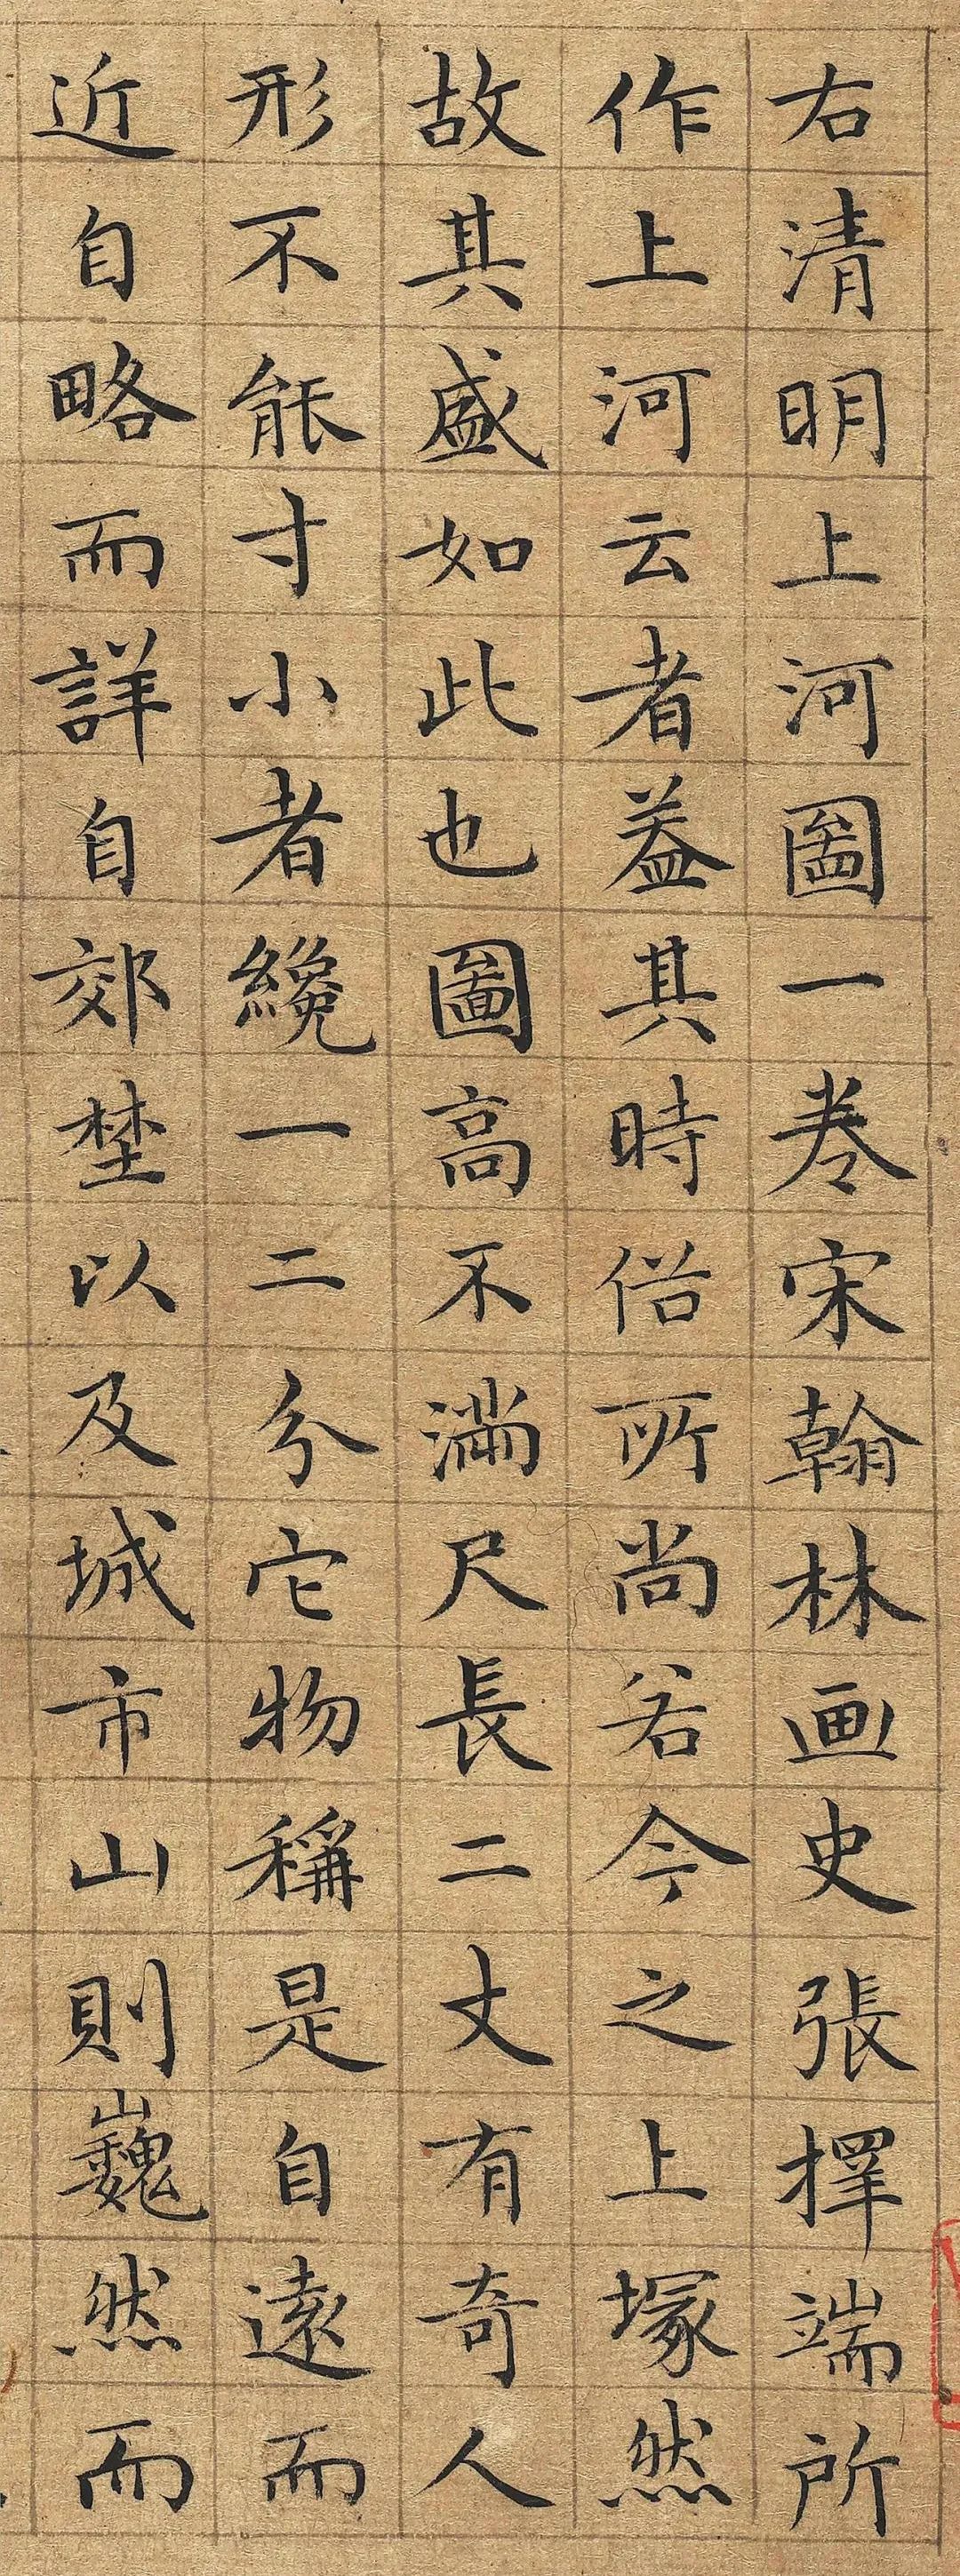 右清明上河圖一卷宋翰林画史張擇端所
作上河云者蓋其時俗所尚若今之上塚然
故其盛如此也圖高不滿尺長二丈有奇人
形不能寸小者纔一二分它物稱是自遠而
近自略而詳自郊埜以及城市山則巍然而